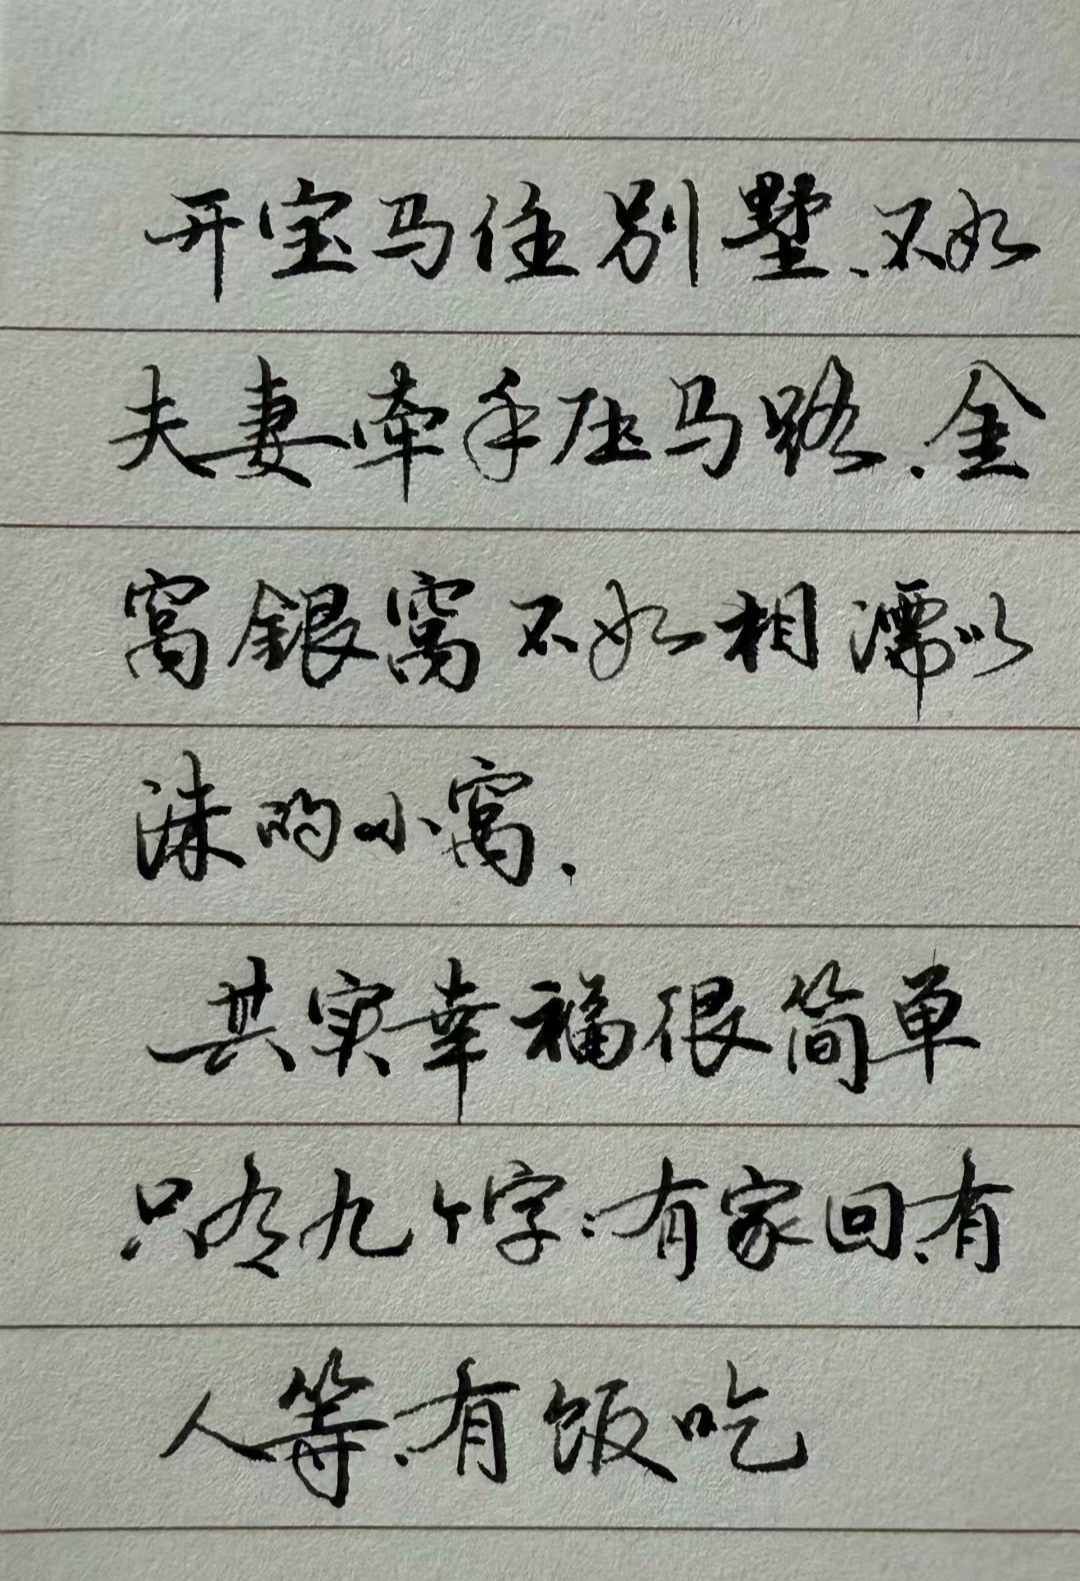 开宝马住别墅、不如
夫妻牵手压马路、金
窝銀窝不如相濡以
沫的小窝.
其实幸福很简单
只有九个字:有家回、有
人等、有饭吃